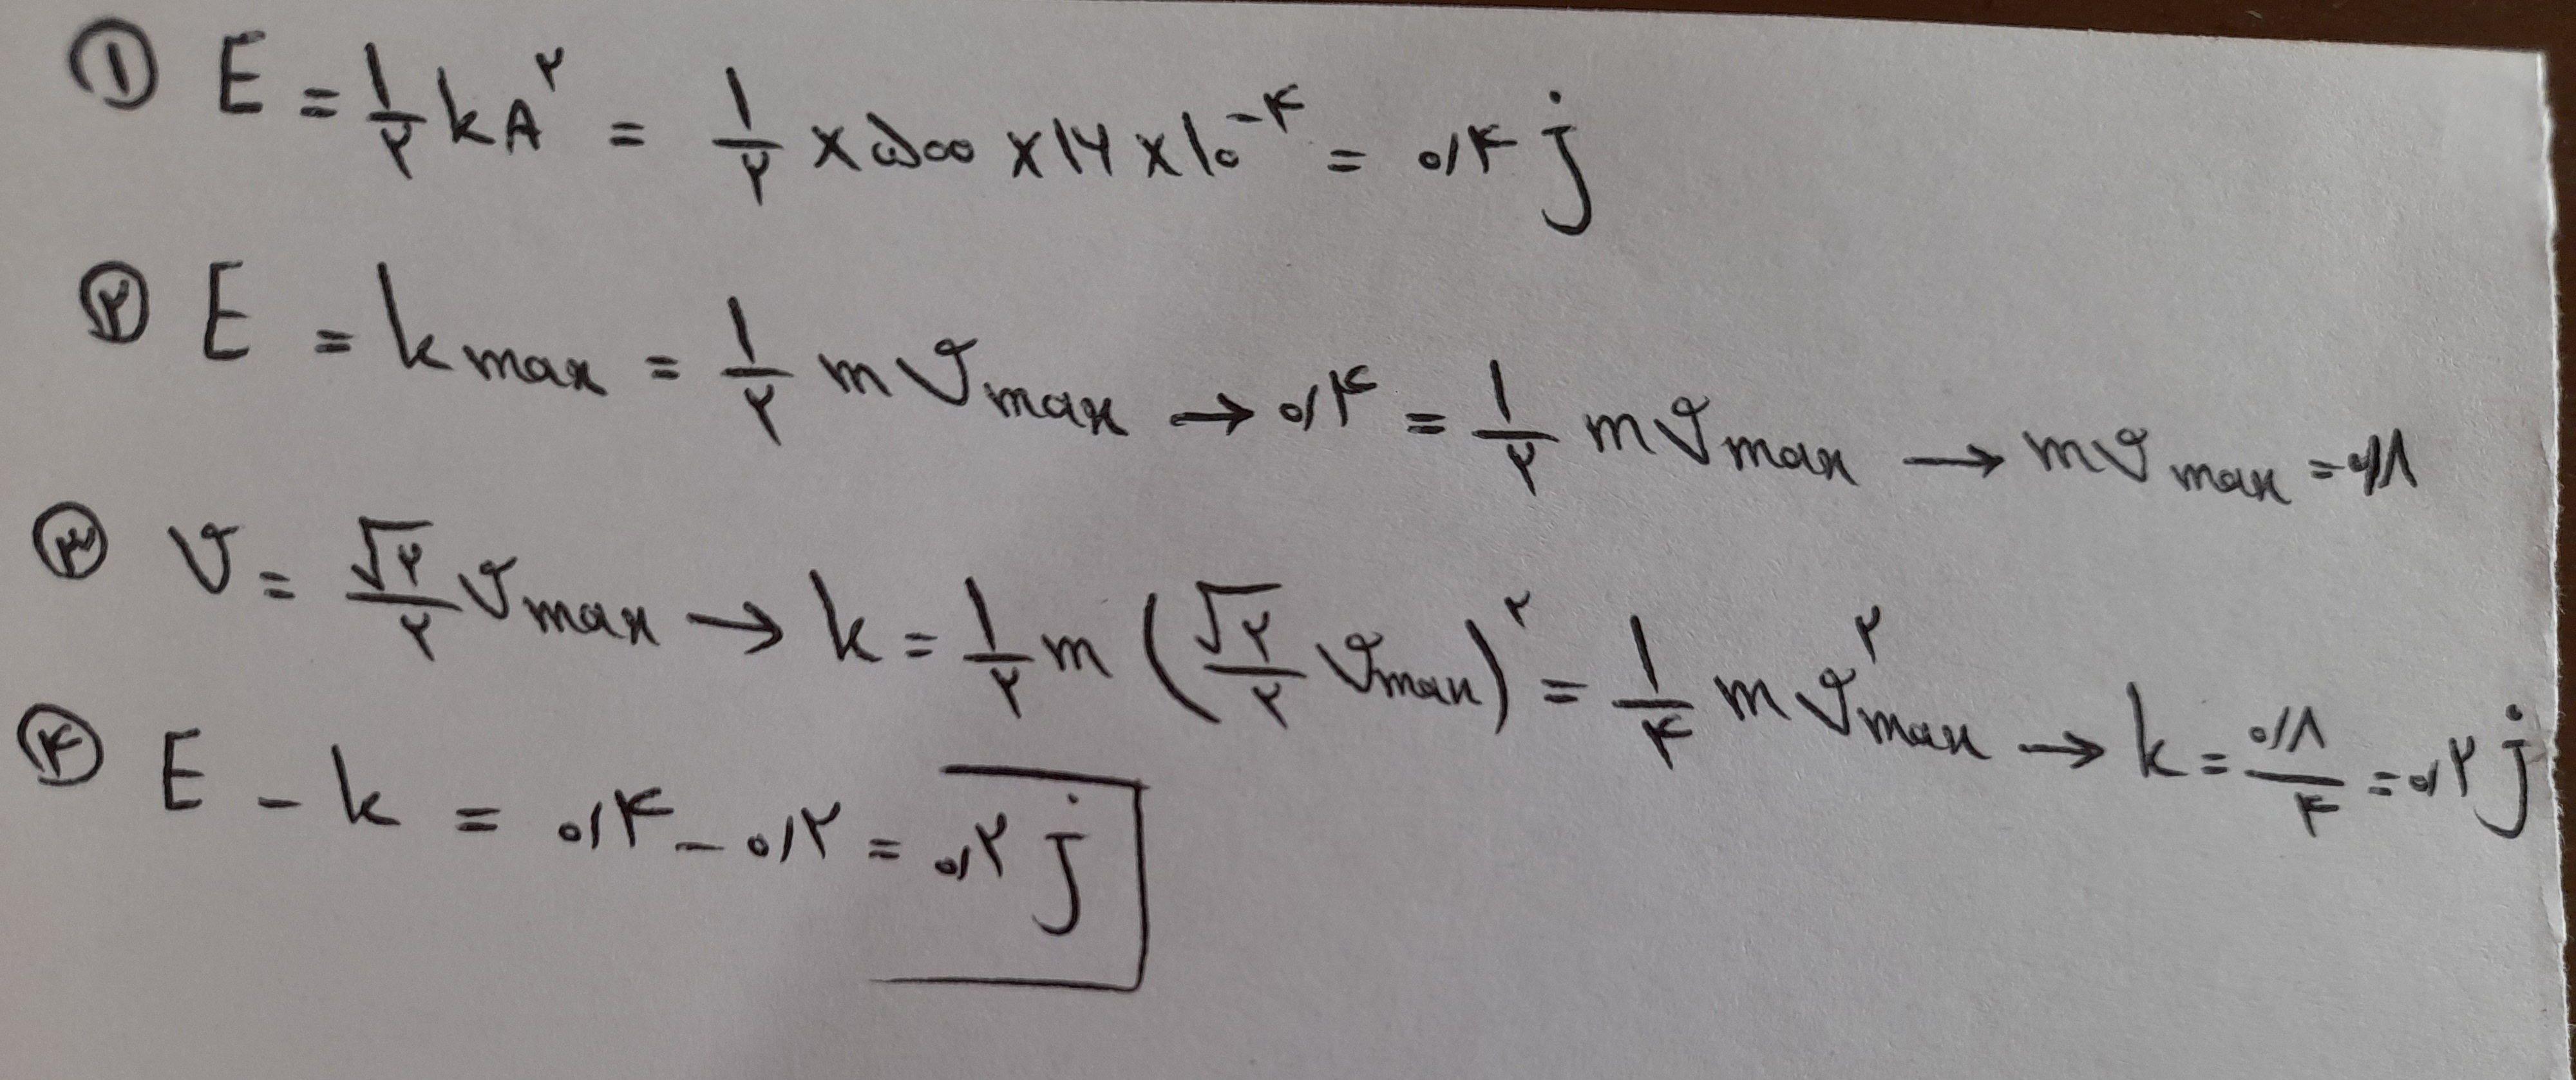 ① E = ۱/۲ kA^۲ = ۱/۲ × ۵۰۰ × ۱۶ × ۱۰^-۴ = ۰/۴ j
② E = k max = ۱/۲ m v max → ۰/۴ = ۱/۲ m v max → m v max = ۰/۸
③ v = √۲/۲ v max → k = ۱/۲ m (√۲/۲ v max)^۲ = ۱/۴ m v^۲ max → k = ۰/۸/۴ = ۰/۲ j
④ E - k = ۰/۴ - ۰/۲ = ۰/۲ j